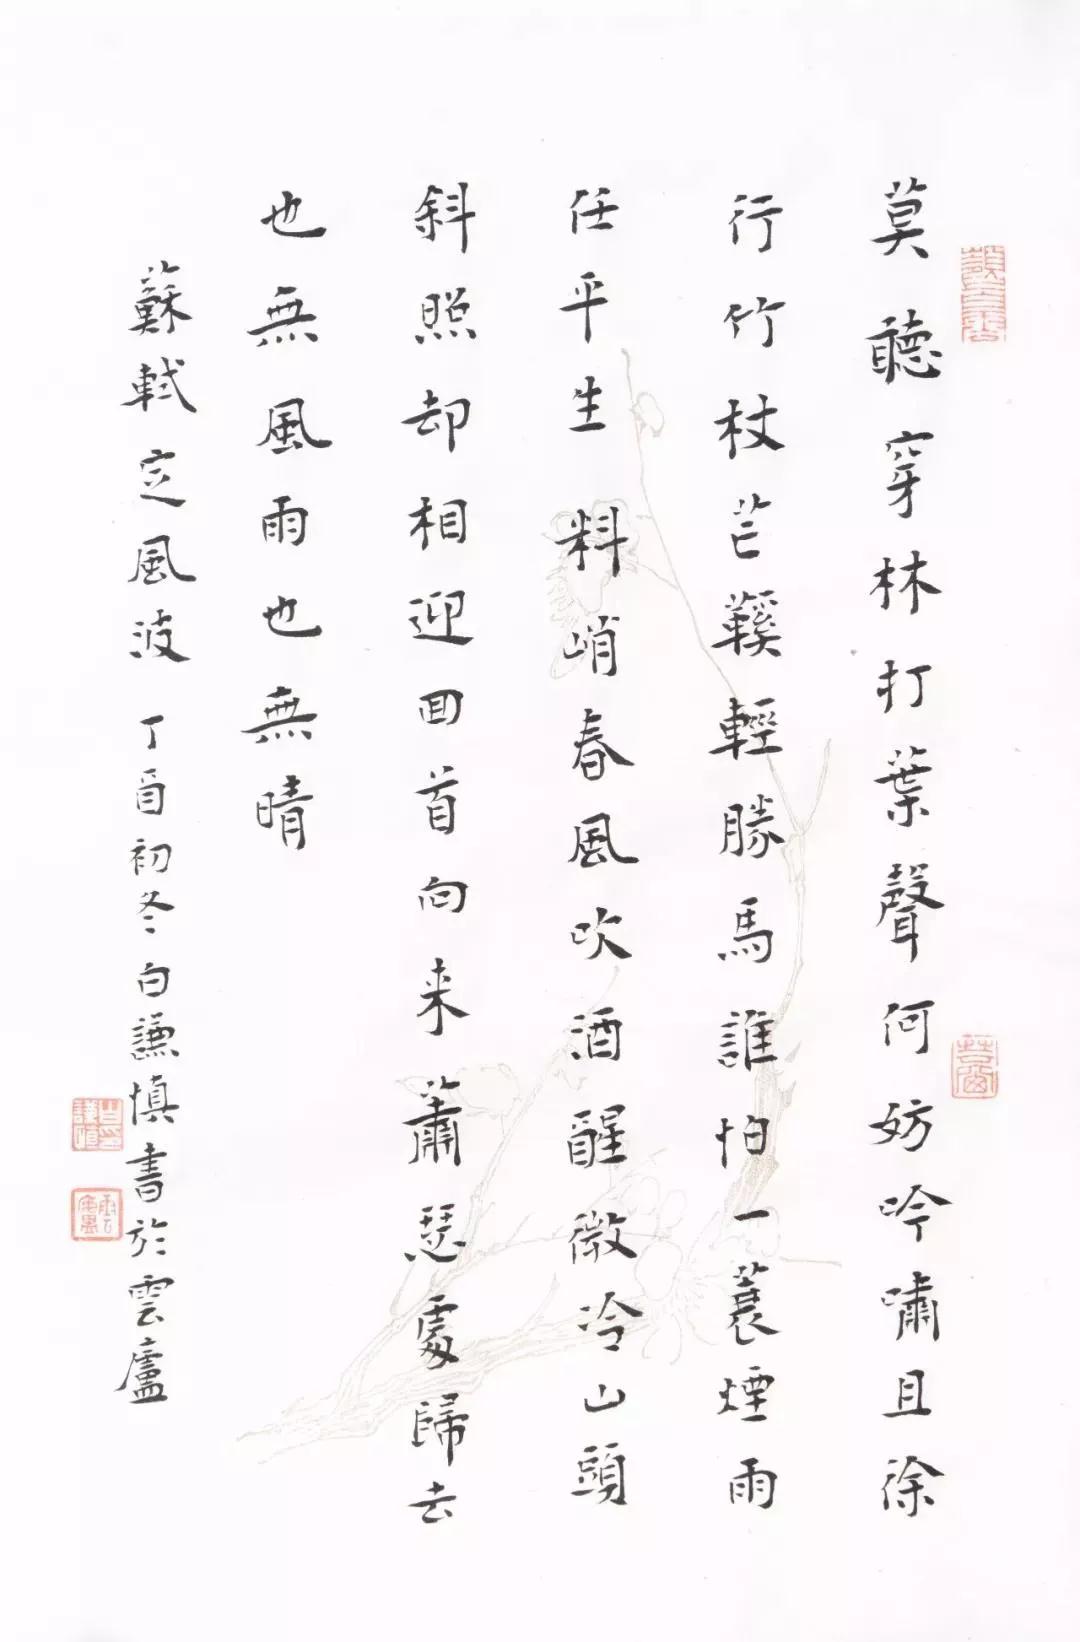 莫聽穿林打葉聲何妨吟嘯且徐
行竹杖芒鞵輕勝馬誰怕一蓑煙雨
任平生料峭春風吹酒醒微冷山頭
斜照却相迎回首向来蕭瑟處歸去
也無風雨也無晴
蘇軾定風波 丁酉初冬白謙慎書於雲廬